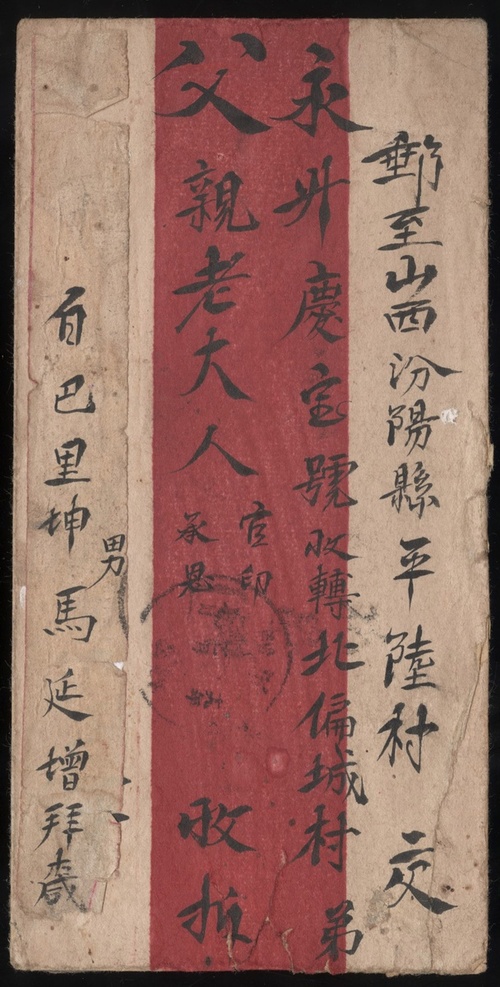 郵至山西汾陽縣平陸村交
永卅慶宝號收轉北偏城村弟
父親老大人 官印承恩 收拆
自巴里坤 男 馬延增拜